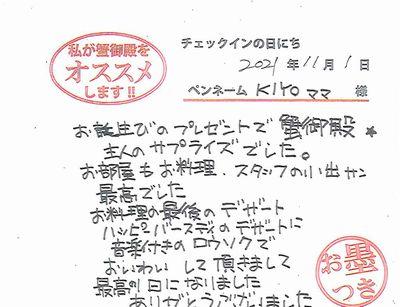 私が蟹御殿を
オススメ
します!!
チェックインの日にち
2021年11月1日
ペンネーム KIYOママ 様
お誕生びのプレゼントで蟹御殿★
主人のサプライズでした。
お部屋もお料理、スタッフの小出サン
最高でした
お料理の最後のデザート
ハッピバースディのデザートに
音楽付きのロウソクで
おいわいして頂きまして
最高の日になりました
ありがとうございました
お墨
つき